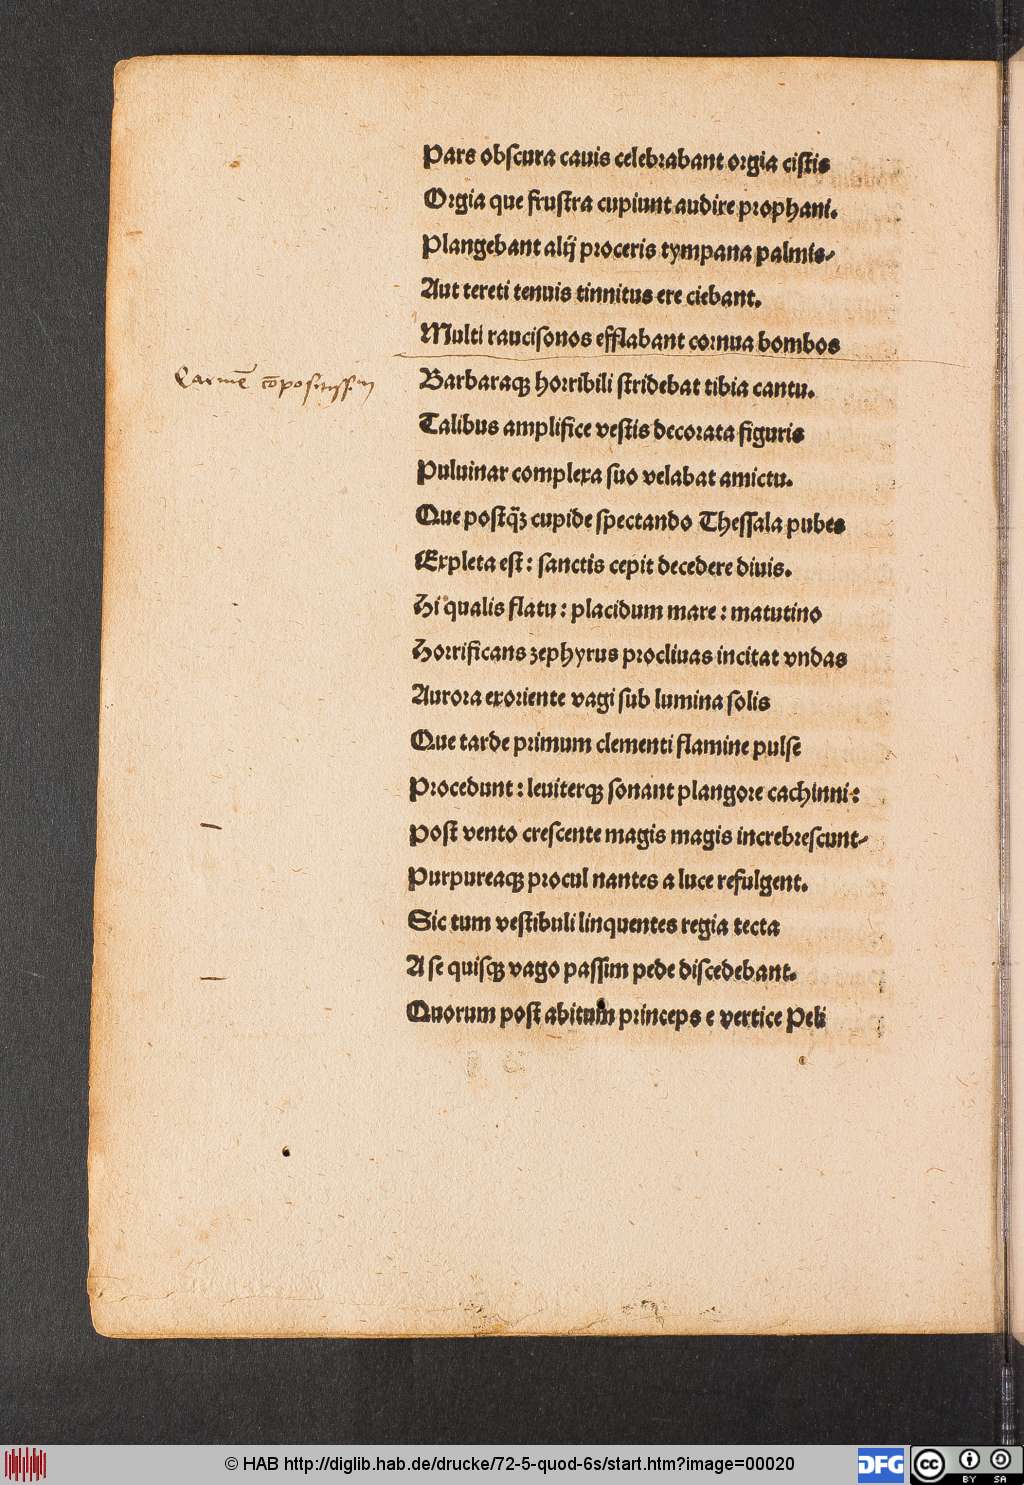 Pars obscura cauis celebrabant orgia cistis
Orgia que frustra cupiunt audire prophani.
Plangebant alij proceris tympana palmis/
Aut tereti tenuis tinnitus ere ciebant.
Multi raucisonos efflabant cornua bombos
Carmē cōpositissim
Barbaraqꝫ horribili stridebat tibia cantu.
Talibus amplifice vestis decorata figuris
Puluinar complexa suo velabat amictu.
Que postq̄ꝫ cupide spectando Thessala pubes
Expleta est: sanctis cepit decedere diuis.
Hi qualis flatu: placidum mare: matutino
Horrificans zephyrus procliuas incitat vndas
Aurora exoriente vagi sub lumina solis
Que tarde primum clementi flamine pulse
Procedunt: leuiterqꝫ sonant plangore cachinni:
Post vento crescente magis magis increbrescunt/
Purpureaqꝫ procul nantes a luce refulgent.
Sic tum vestibuli linquentes regia tecta
A se quisqꝫ vago passim pede discedebant.
Quorum post abitum princeps e vertice Peli
© HAB http://diglib.hab.de/drucke/72-5-quod-6s/start.htm?image=00020
DFG
cc
BY SA